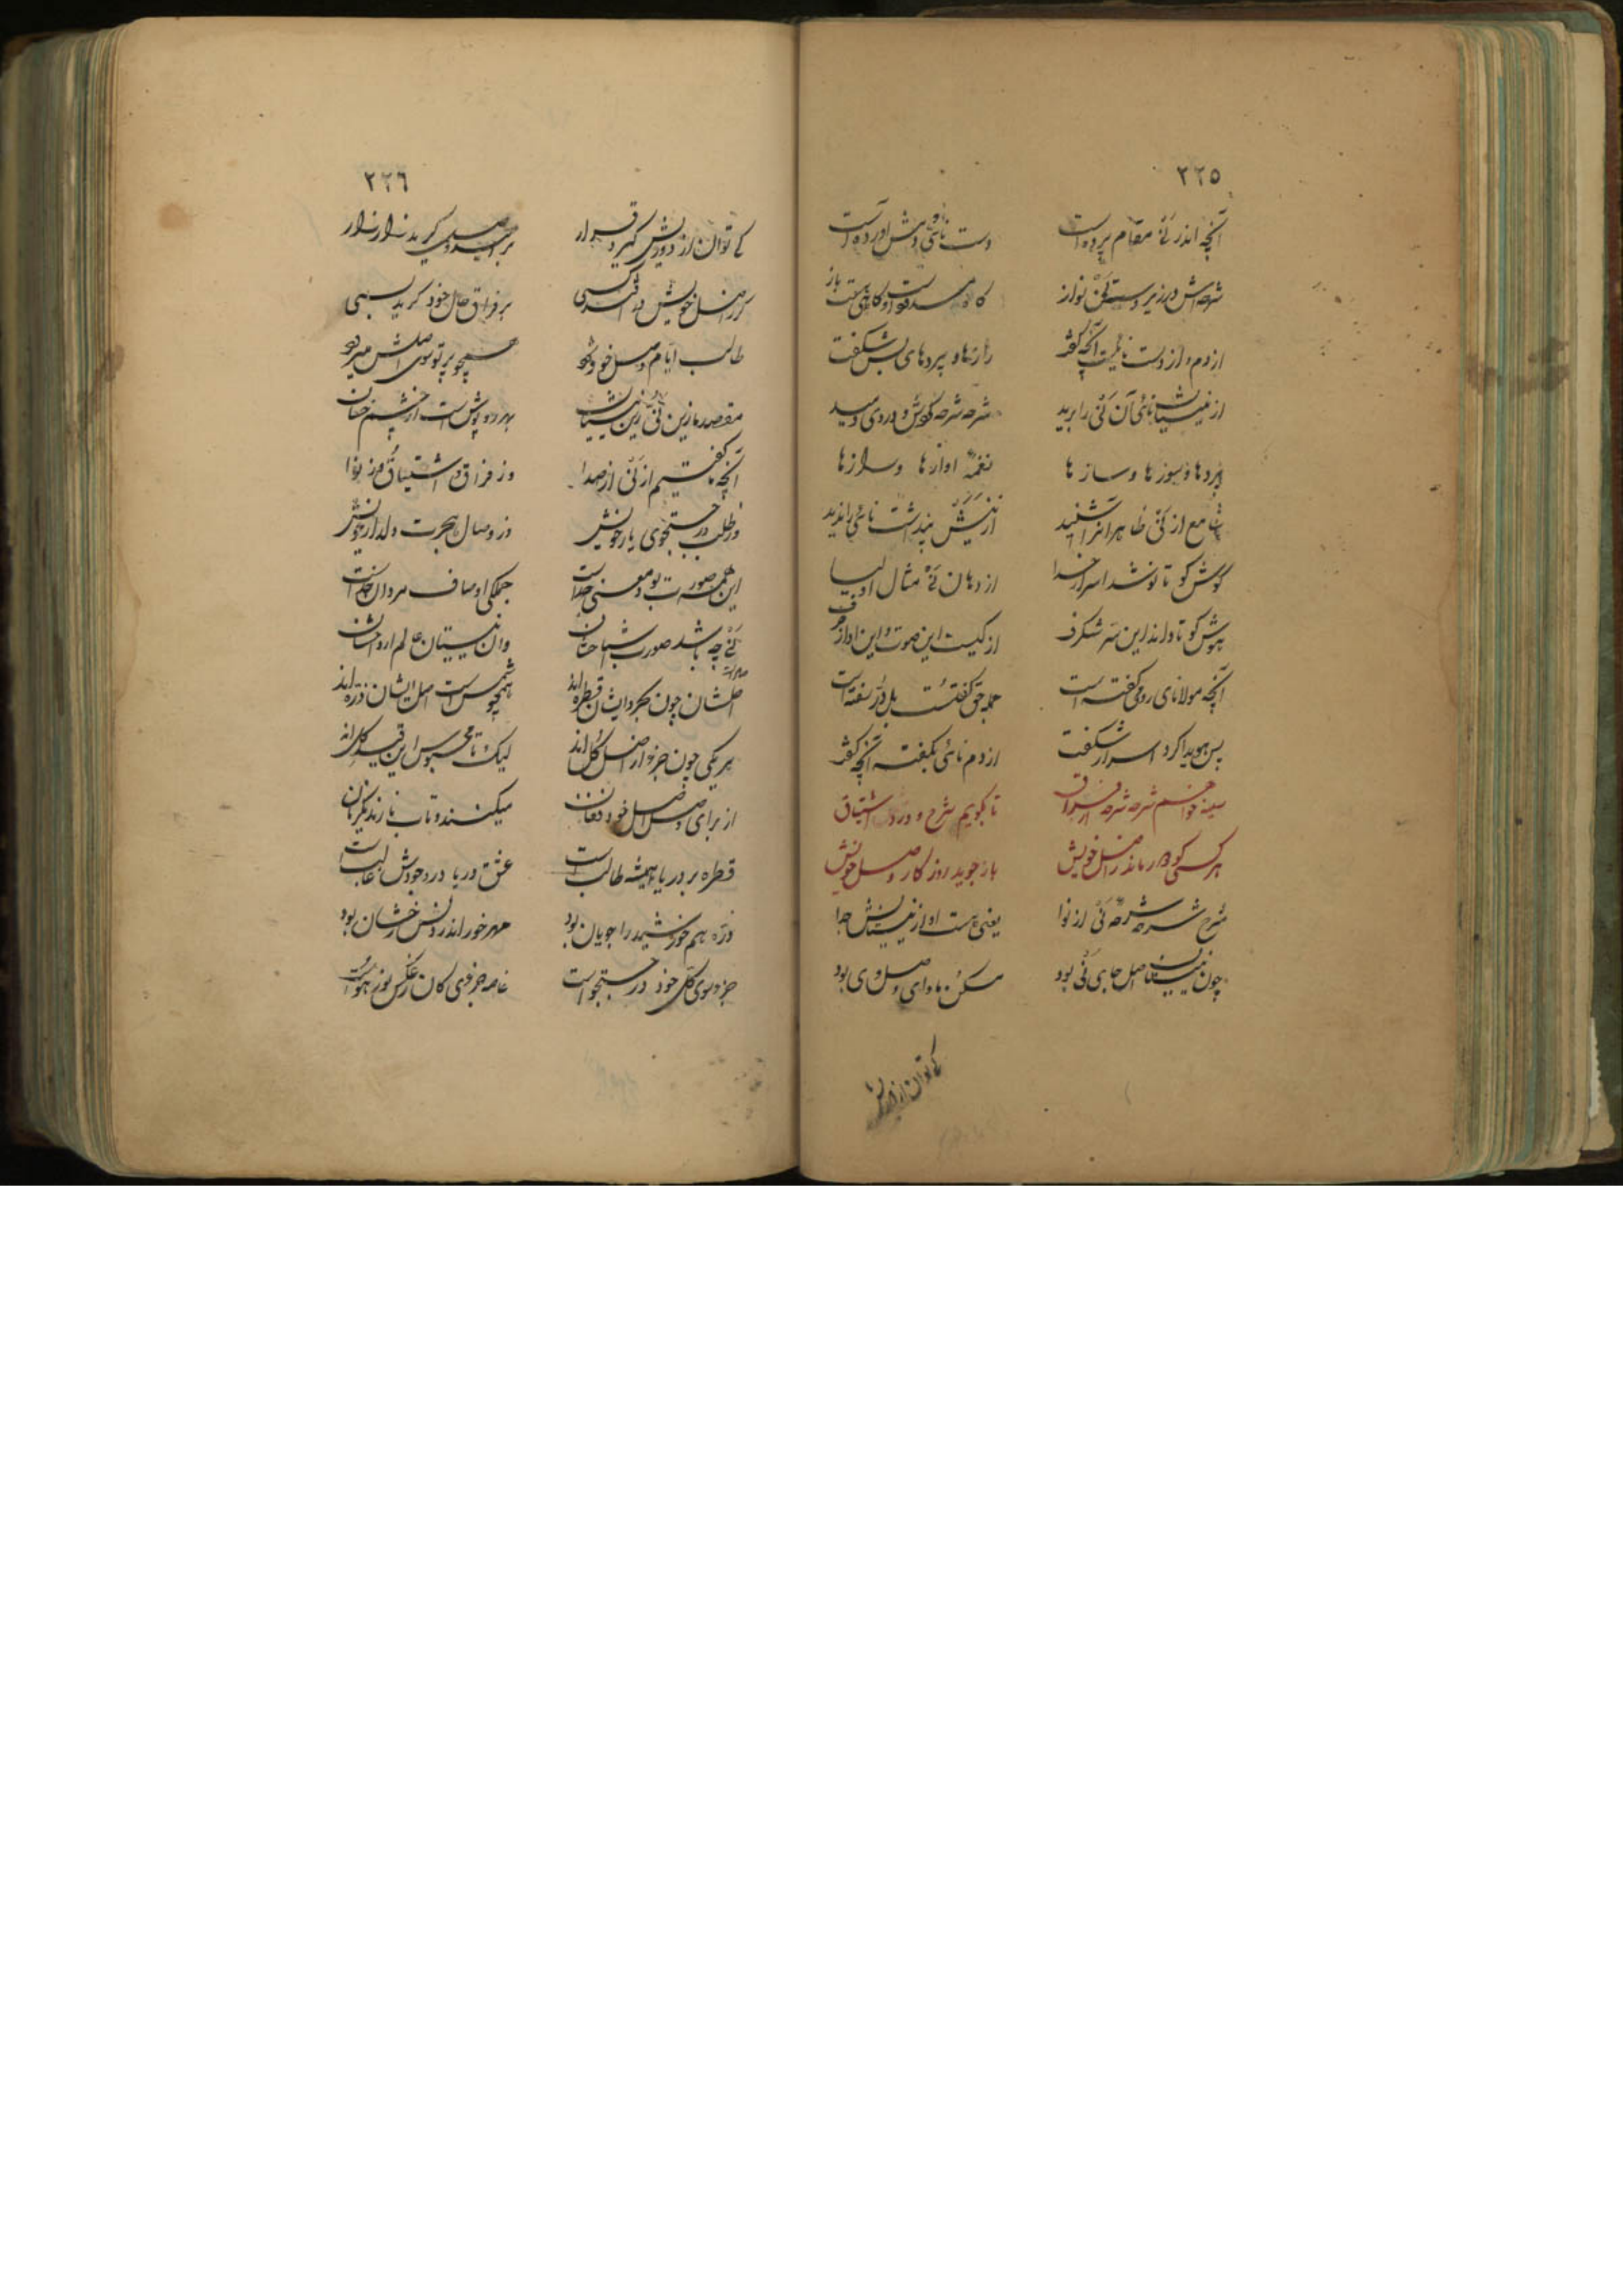 ٢٢٥
آنچه اندر نی مقام پرده است دست نائی و دمش آورده است
شرحه اش در زیر دست نی نواز گاه
از دم و از دست نائیست آنچه گفت رازها و پردهای بس شگفت
از نیستانش نائی آن نی را برید شرحه شرحه کردش و دردی دمید
پردها و سوزها و سازها نغمه آوازها و رازها
سامع از نی ظاهرا آنرا شنید از نیش پنداشت نائی را ندید
گوش کو تا نوشد اسرار خدا از دهان نی مثال اولیا
هوش کو تا داند این سر شگرف از کیست این صوت و این آواز و حرف
آنچه مولانای رومی گفته است جمله حق گفتست بل در سفته است
بس هویدا کرد اسرار شگفت از دم نائی بگفت آنچه گفت
سینه خواهم شرحه شرحه از فراق تا بگویم شرح و درد اشتیاق
هر کسی کو دور ماند از اصل خویش باز جوید روزگار وصل خویش
شرح شرحه نی از نوا یعنی هست او از نیستانش جدا
چون نیستان اصل جای نی بود مسکن و ماوای وصل وی بود
کی توان از دوریش
٢٢٦
کی توان از دوریش گیرد قرار بر امید وصل گرید زار زار
گر ز اصل خویش دور افتد کسی بر فراق حال خود گرید بسی
طالب ایام وصل خود شود همچو پرتو سوی اصلش میرود
مقصد ما زین نی و زین نیستان پرده پوش است از چشم خسان
آنچه ما گفتیم از نی از صدا وز فراق و اشتیاق و ز نوا
وز طلب در جستجوی یار خویش وز وصال و هجرت دلدار خویش
این همه صورت بود معنی جداست جملگی اوصاف مردان خداست
نی چه باشد صورت اشباحشان وان نیستان عالم ارواحشان
اصلشان چون بحر و ایشان قطره اند همچو شمس است اصل ایشان ذره اند
هر یکی چون جزو از اصل کل اند لیک تا محبوس این قید گل اند
از برای وصل اصل خود فغان میکنند و تاب نارند یکزمان
قطره بر دریا همیشه طالب است عشق دریا در وجودش غالب است
ذره هم خورشید را جویان بود مهر خور اندر دلش رخشان بود
جزو سوی کل خود در جستجو است خاصه جزوی کان ز عکس نور هو است